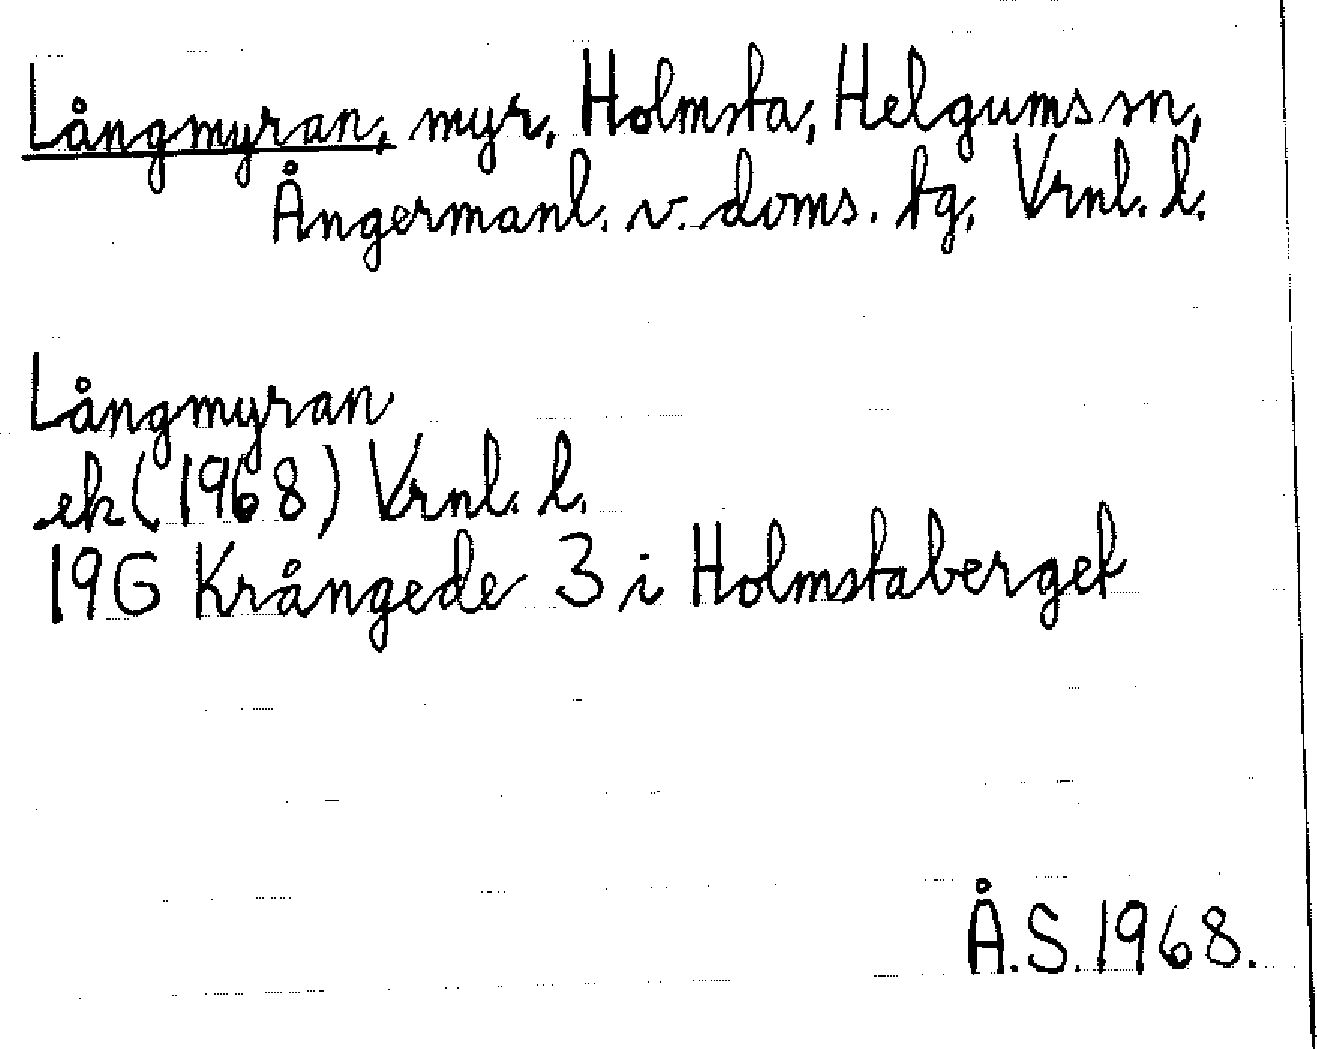 Långmyran, myr, Holmsta, Helgums sn,
Ångermanl. v. doms. tg, Vrnl. l.
Långmyran
ek (1968) Vrnl. l.
19G Krångede 3 i Holmstaberget
Å.S. 1968.